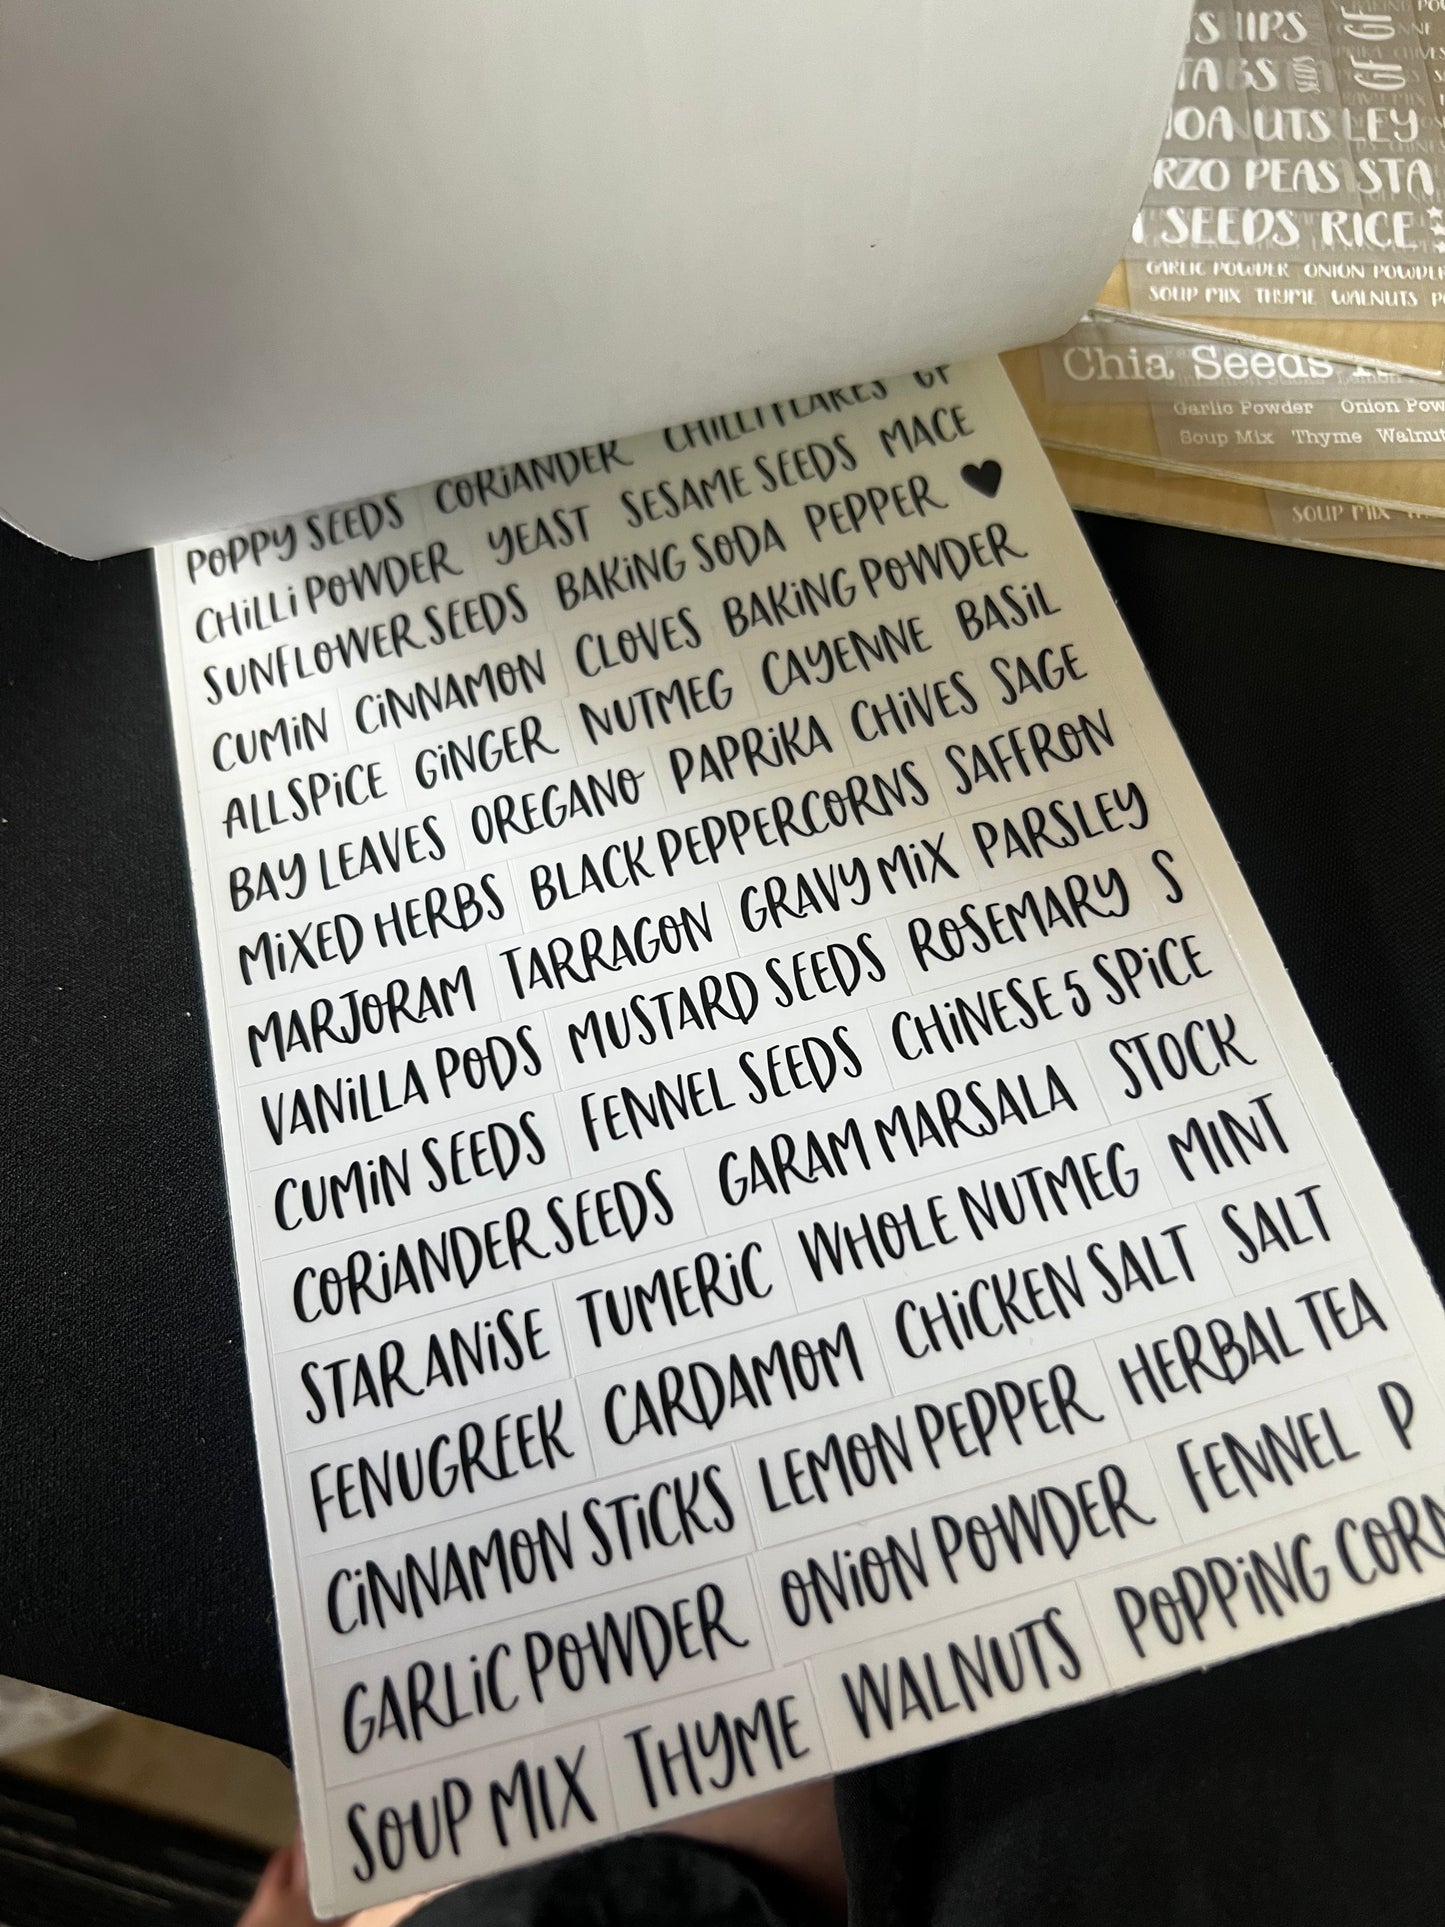 POPPY SEEDS CORIANDER CHILLI FLAKES GF
CHILLI POWDER YEAST SESAME SEEDS MACE
SUNFLOWER SEEDS BAKING SODA PEPPER
CUMIN CINNAMON CLOVES BAKING POWDER
ALLSPICE GINGER NUTMEG CAYENNE BASIL
BAY LEAVES OREGANO PAPRIKA CHIVES SAGE
MIXED HERBS BLACK PEPPERCORNS SAFFRON
MARJORAM TARRAGON GRAVY MIX PARSLEY
VANILLA PODS MUSTARD SEEDS ROSEMARY S
CUMIN SEEDS FENNEL SEEDS CHINESE 5 SPICE
CORIANDER SEEDS GARAM MARSALA STOCK
STAR ANISE TUMERIC WHOLE NUTMEG MINT
FENUGREEK CARDAMOM CHICKEN SALT SALT
CINNAMON STICKS LEMON PEPPER HERBAL TEA
GARLIC POWDER ONION POWDER FENNEL P
SOUP MIX THYME WALNUTS POPPING CORN
GF GF
SEEDS
UTS LEY
RZO PEAS STA
SEEDS RICE
GARLIC POWDER ONION POWDER
SOUP MIX THYME WALNUTS
Chia Seeds
Garlic Powder Onion Pow
Soup Mix Thyme Walnut
SOUP MIX